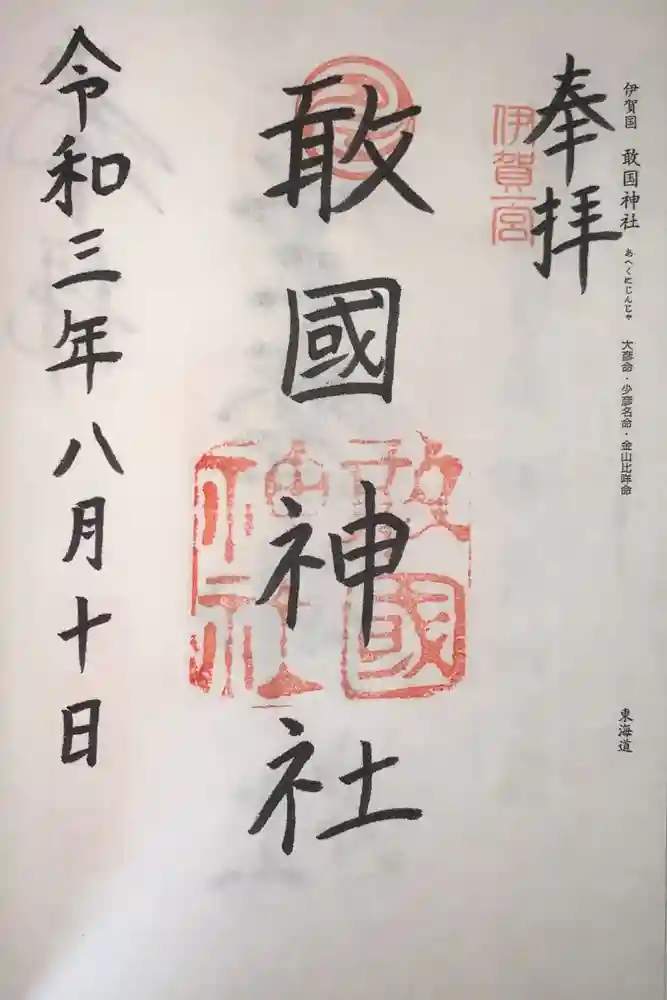 伊賀国 敢国神社 あへくにじんじゃ 大彦命・少彦名命・金山比咩命
東海道
奉拝
伊賀一宮
敢國神社
敢國神社
令和三年八月十日